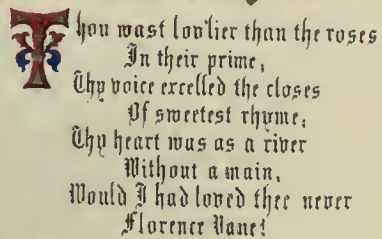 Thou wast lov'lier than the roses
In their prime;
Thy voice excelled the closes
Of sweetest rhyme;
Thy heart was as a river
Without a main,
Would I had loved thee never
Florence Vane!